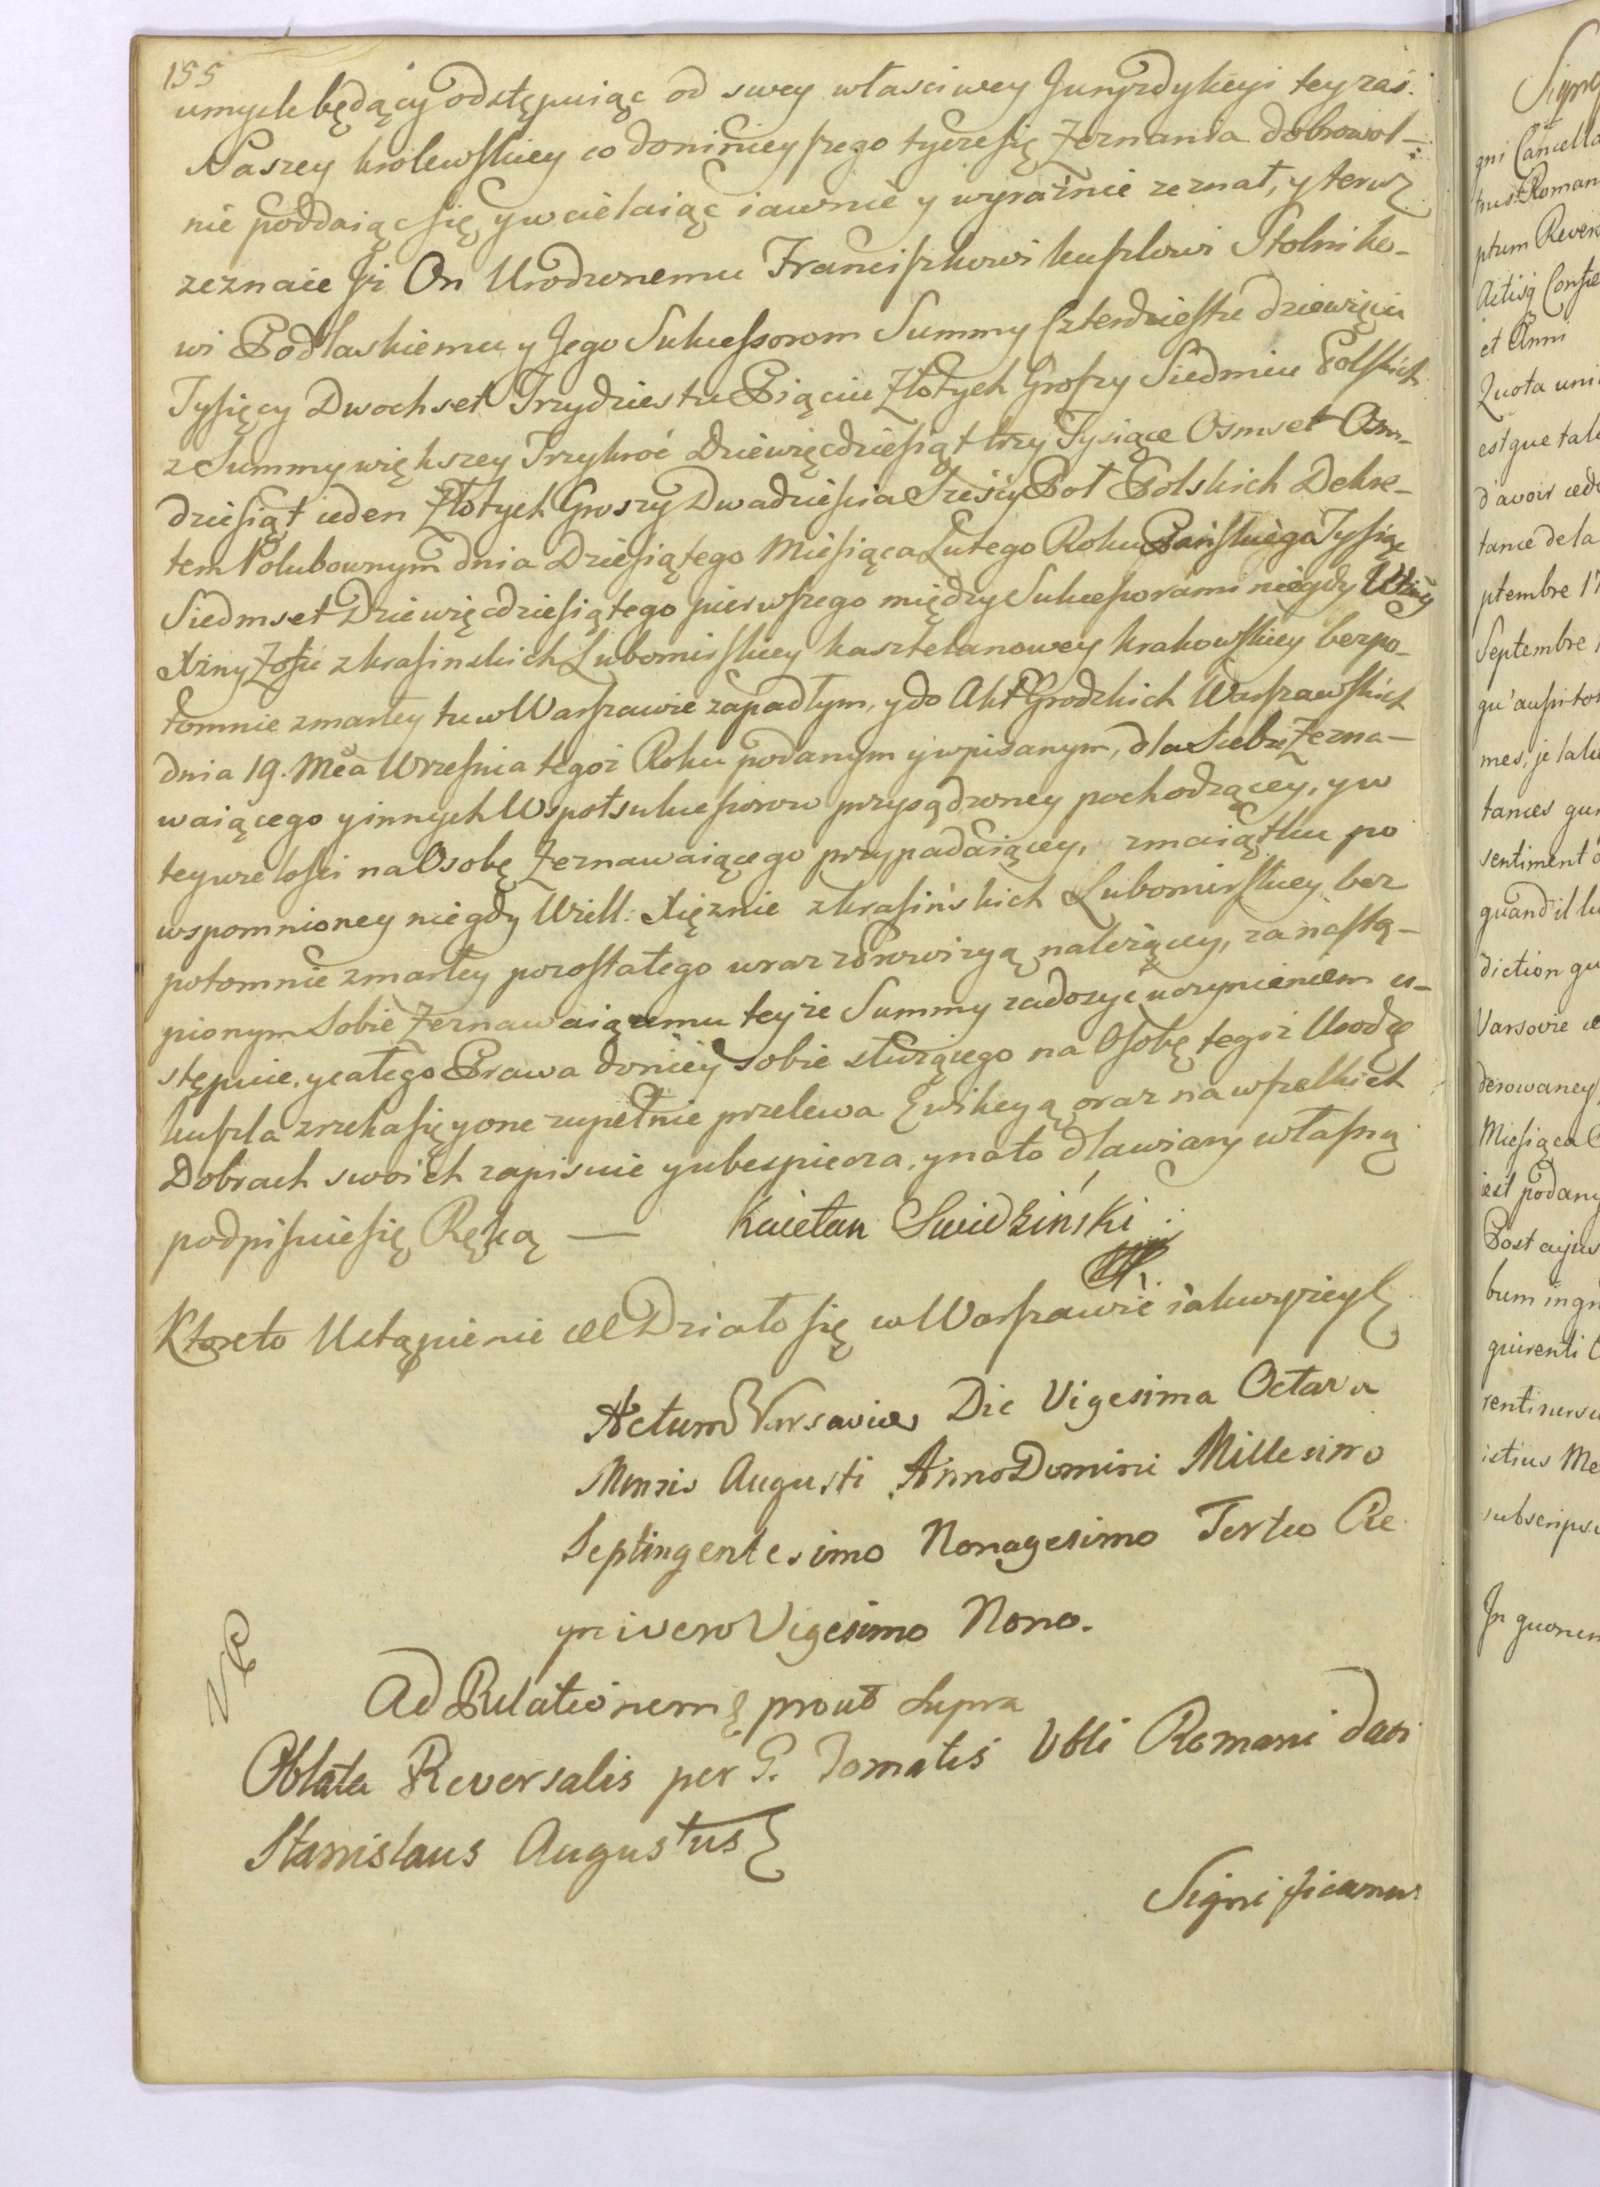 155
umyśle będący odstępuiąc od swey własciwey Juryzdykcyi teyzaś
Naszey krolewskiey co do ninieyszego tycze się Zeznania dobrowol-
nie poddaiąc się y wcielaiąc iawnie y wyraźnie zeznał, y teraz
zeznaie iż On Urodzonemu Franciszkowi kuszlowi Stolniko-
wi Podlaskiemu y Jego Sukcessorom Summy Czterdziestu dziewięciu
Tysięcy Dwochset Trzydziestu Pięciu Złotych Groszy Siedmiu Polskich
z Summy większey Trzykroć Dziewięcdziesiąt trzy Tysiące Osmset Osm-
dziesiąt ieden Złotych Groszy Dwadzieścia Trzeci y Poł Polskich Dekre-
tem Polubownym dnia Dziesiątego Miesiąca Lutego Roku Pańskiego Tysiąc
Siedmset Dziewięcdziesiątego pierwszego między Sukcessorami niegdy
Xżny Zofii z krasinskich Lubomirskiey kasztelanowey krakowskiey bezpo-
tomnie zmarłey tu w Warszawie zapadłym, y do Akt Grodzkich Warszawskich
dnia 19. Mca Września tegoż Roku podanym y wpisanym, dla Siebie Zezna-
waiącego y innych Wspołsukcessorow przysądzoney pochodzącey, y w
teyże ilości na Osobę Zeznawaiącego przypadaiącey, z maiątku po
wspomnioney niegdy Wiell: Xiężnie z krasińskich Lubomirskiey bez
potomnie zmarłey pozostałego wraz z Prowizyą należącey, za nastą-
pionym Sobie Zeznawaiącemu teyże Summy zadosyć uczynieniem u-
stępuie, y całego Prawa do niey sobie służącego na Osobę tegoż Urodz
kuszla zrzeka się y one zupełnie przelewa Ewikcyą oraz na wszelkich
Dobrach swoich zapisuie y ubespiecza, y na to dla wiary własną
podpisuie się Ręką — Kaietan Swidziński
Ktoreto Ustąpienie etc Działo się w Warszawie iak wyżey
Actum Varsaviae Die Vigesima Octava
Mensis Augusti Anno Domini Millesimo
Septingentesimo Nonagesimo Tertio Re
gni vero Vigesimo Nono.
Ad Relationem prout supra
Oblata Reversalis per G. Tomatis Vbli Romani dati
Stanislaus Augustus
Significamus
Signi
gni Cancella
ptum Revers
et Anni
Quota uni
estque tale
d'avoir cede
tance de la
ptembre 17
Septembre
mes, je
tances que
sentiment
quand il
diction qu
Varsovie
derowaney
Miesiąca
iest podany
Post cujus
bum in gn
quirenti
ictius Me
subscripsi
In quorum